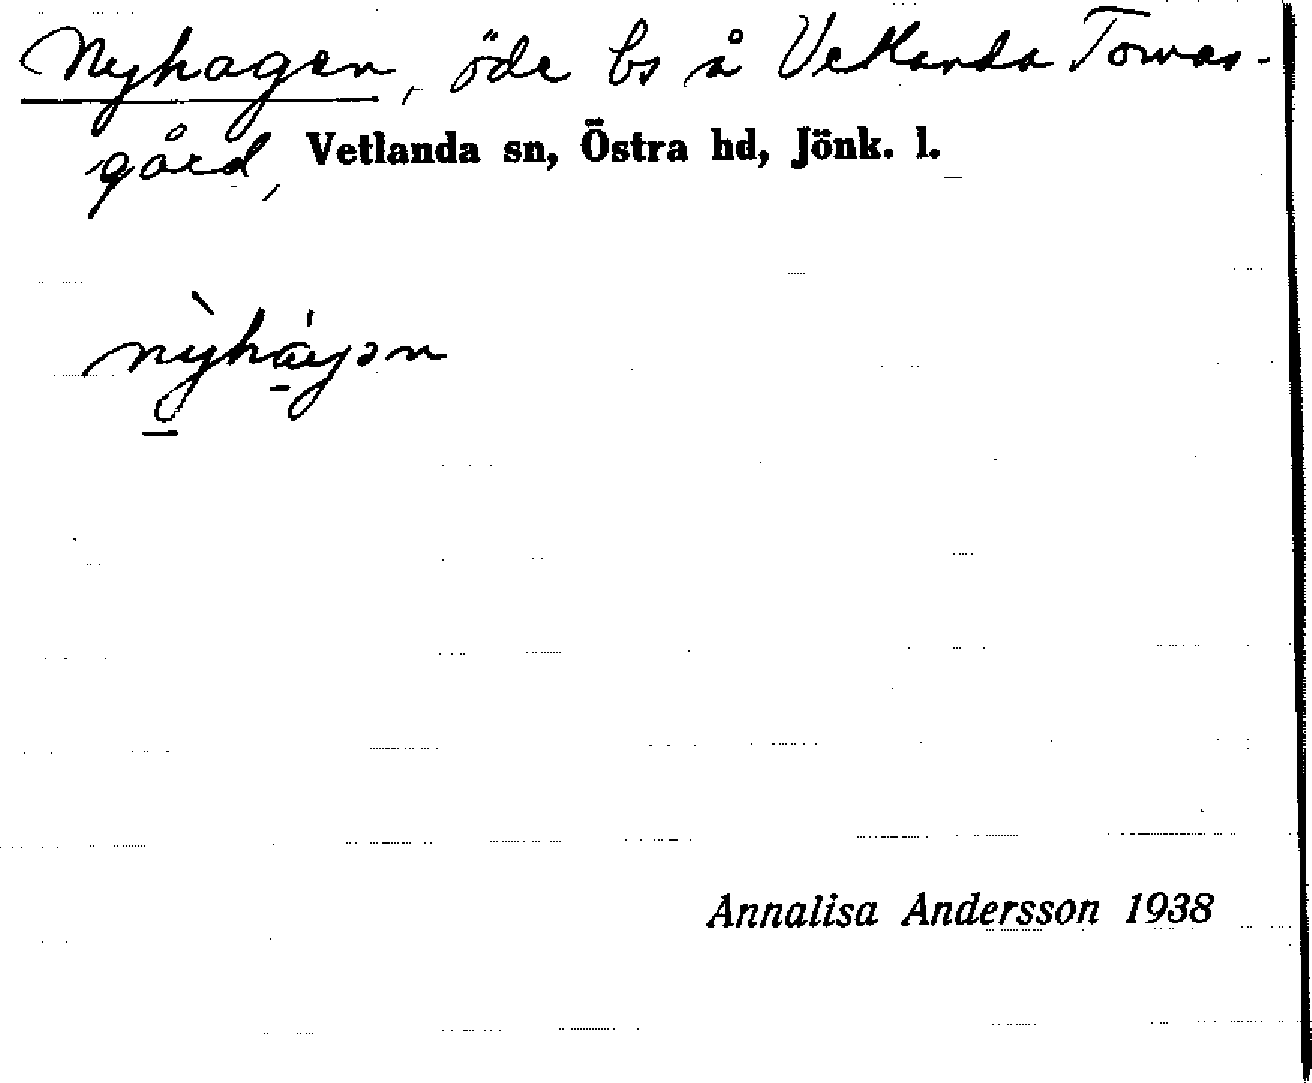 Nyhagen, öde bs å Vetlanda Tomas-
gård, Vetlanda sn, Östra hd, Jönk. l.
nỳhág̣ən
Annalisa Andersson 1938